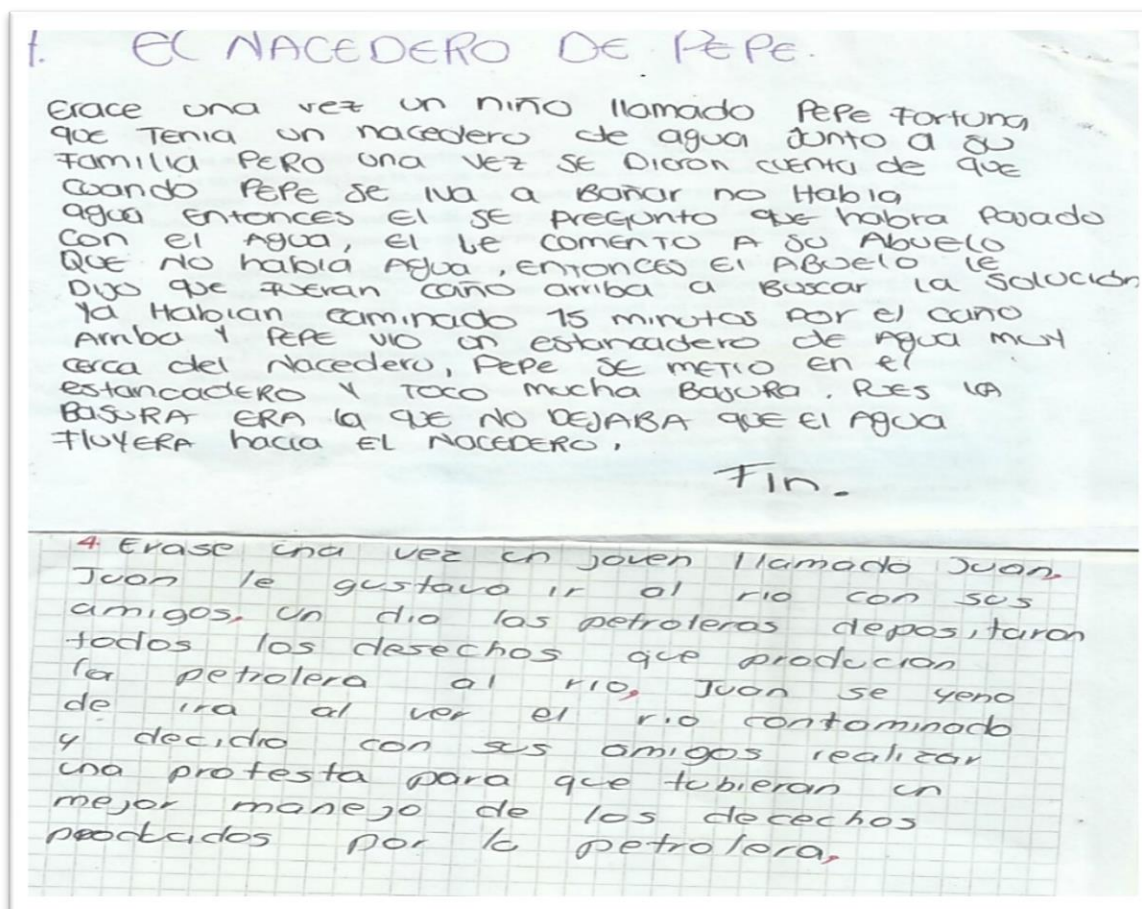 1. EL NACEDERO DE PEPE.
Erace una vez un niño llamado PEPE Fortuna
que Tenia un nacedero de agua Junto a su
Familia PERO una VEZ SE Dieron cuenta de que
cuando PEPE Se iva a Bañar no Habia
agua Entonces El SE PREGUNTO que habra Pasado
con el AgUa, El Le COMENTO A SU Abuelo
QUE NO habia Agua, ENTONCES El ABuelo le
Dijo que FUERAN caño arriba a Buscar la Solución
Ya Habian caminado 15 minutos Por el caño
Arriba Y PEPE vio un estancadero de Agua MUY
cerca del Nacedero, PEPE SE METIO En el
estancadERO Y TOCO mucha BasURA. PUES LA
BASURA ERA la QUE NO DEJABA QUE El AgUa
FlUYERA hacia EL NACEDERO.
Fin.
4 Erase una vez un joven llamado Juan,
Juan le gustava ir al rio con sus
amigos, un dia las petroleras depositaron
todos los desechos que producian
la petrolera al rio, Juan se yeno
de ira al ver el rio contaminado
y decidio con sus amigos realizar
una protesta para que tubieran un
mejor manejo de los decechos
por la petrolera,